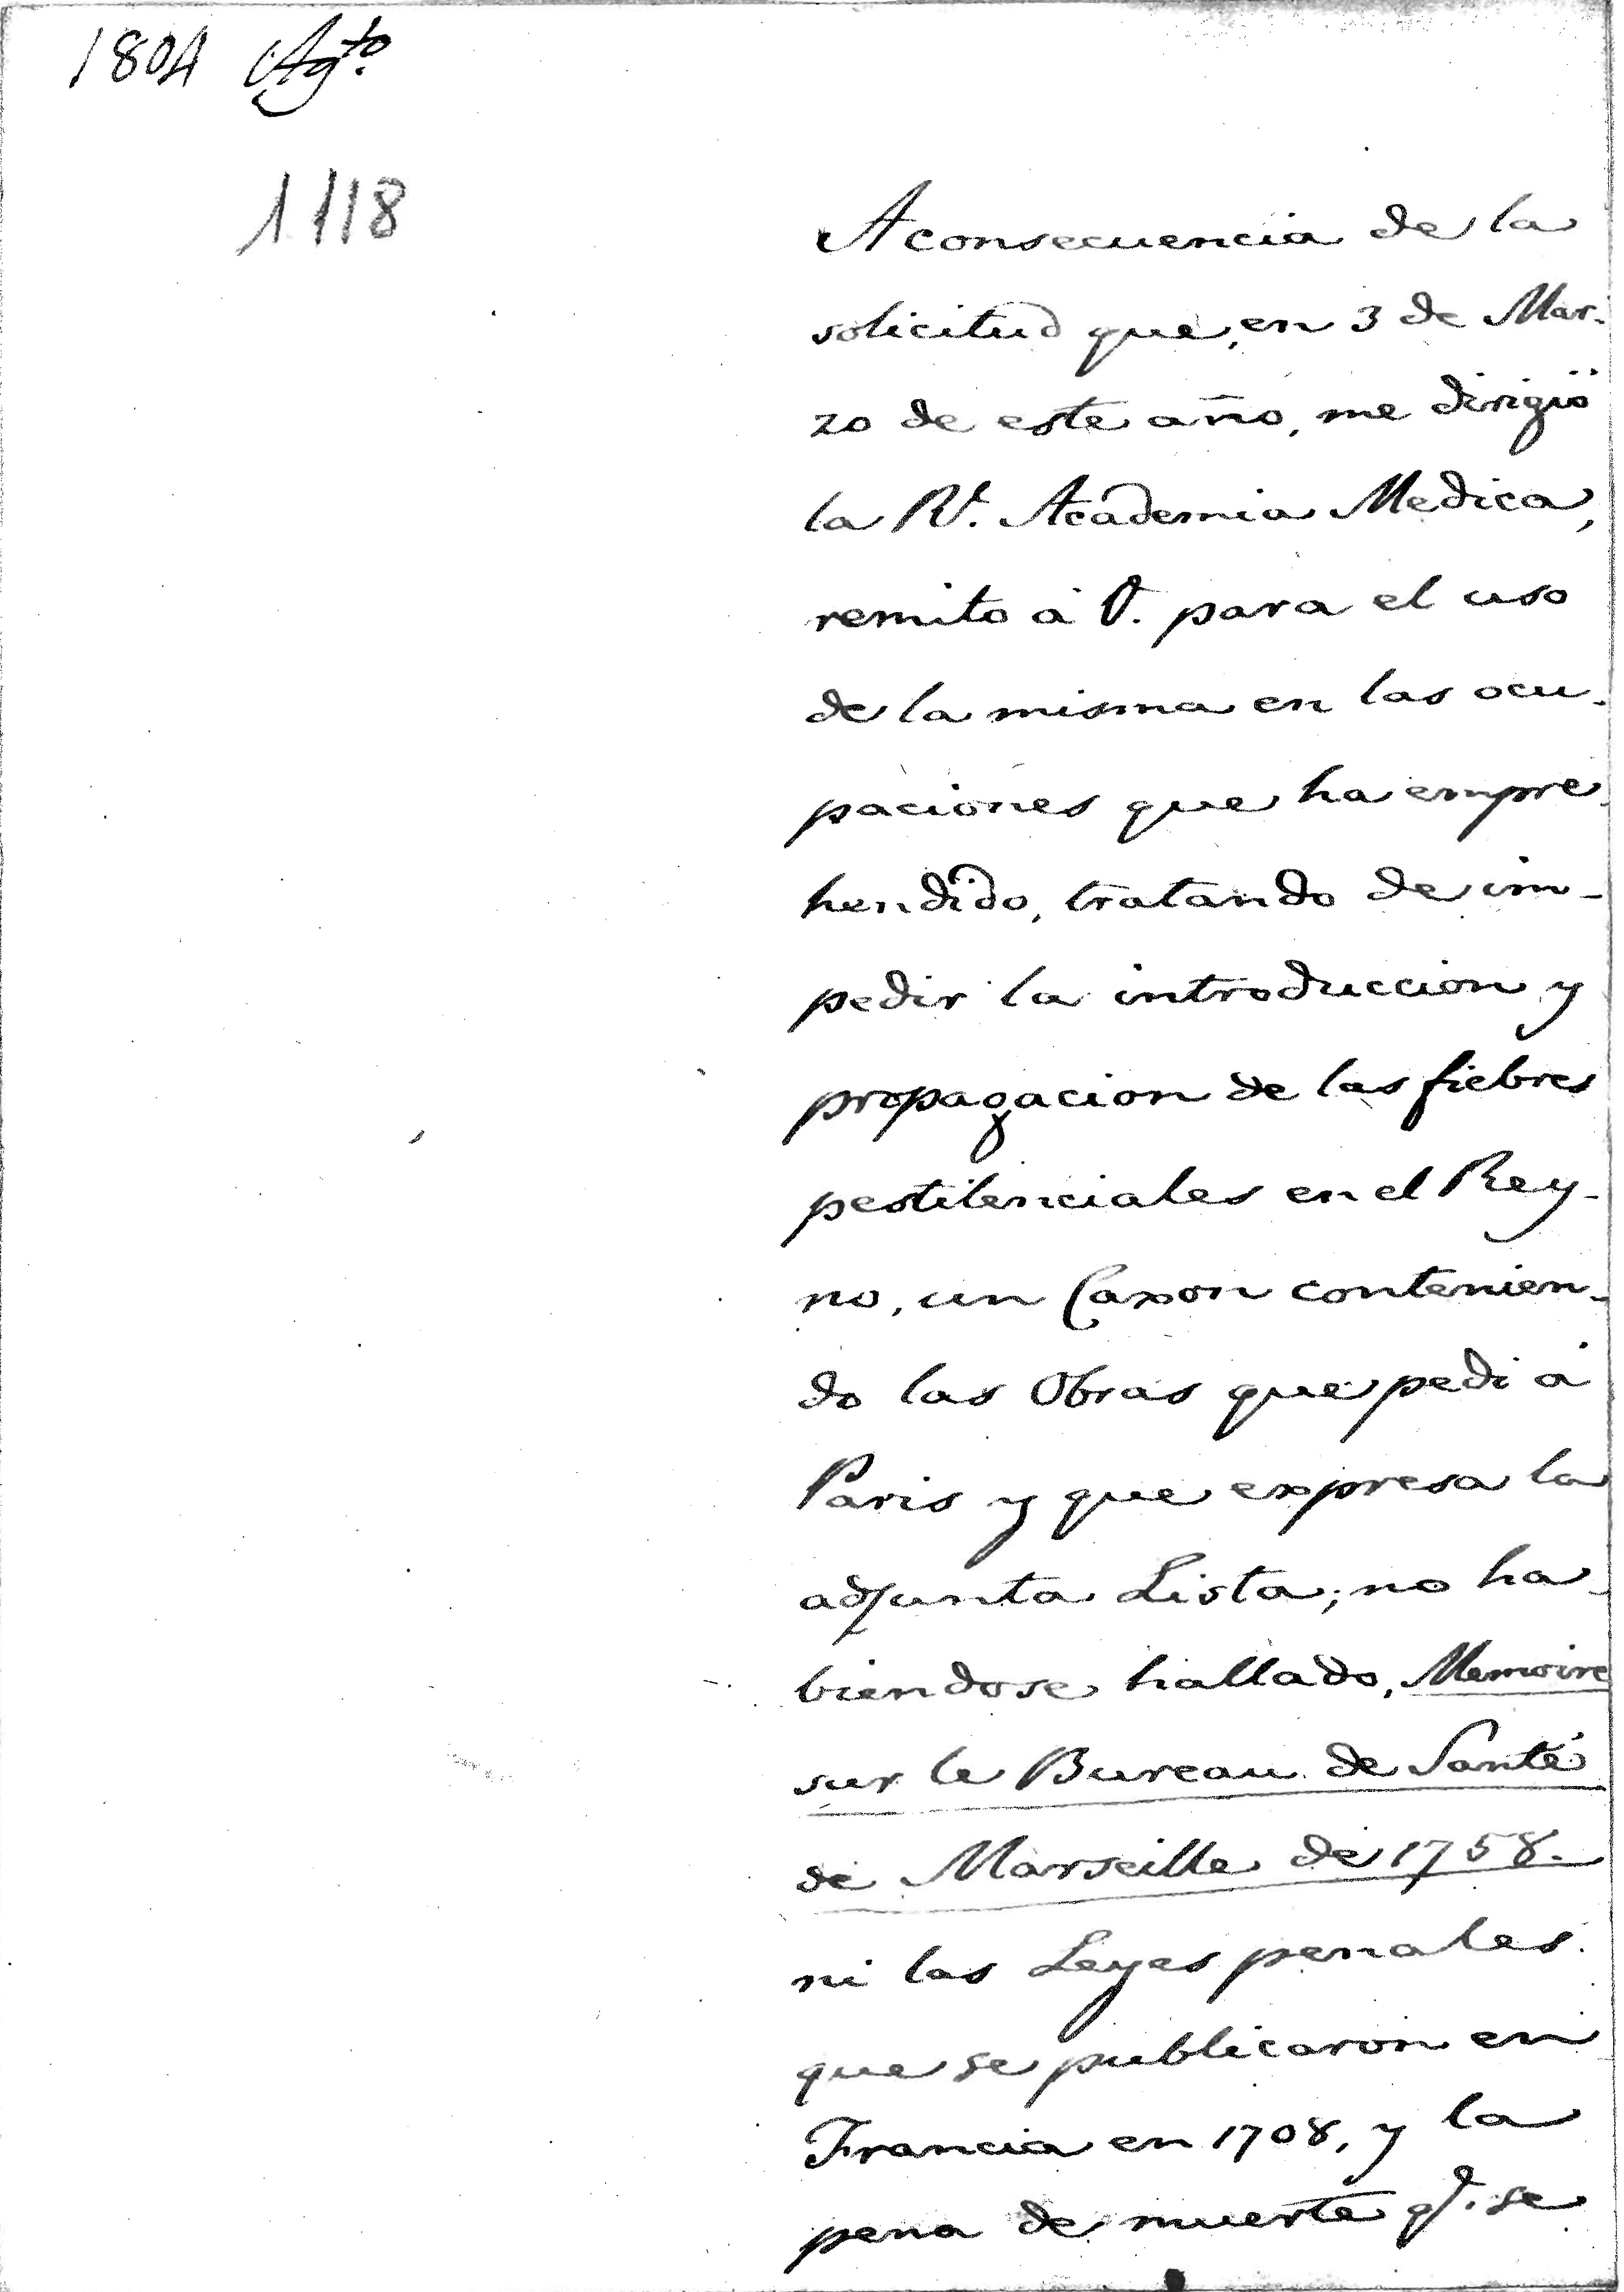 1804 Agto.
1118
A consecuencia de la
solicitud que, en 3 de Mar-
zo de este año, me dirigió
la Rl. Academia Medica,
remito á V. para el uso
de la misma en las ocu-
paciones que ha empre-
hendido, tratando de im-
pedir la introduccion y
propagacion de las fiebres
pestilenciales en el Rey-
no, un Caxon contenien-
do las Obras que pedi á
Paris y que expresa la
adjunta Lista; no ha-
biendose hallado, Memoire
sur le Bureau de Santé
de Marseille de 1758.
ni las Leyes penales
que se publicaron en
Francia en 1708, y la
pena de muerte qe. se